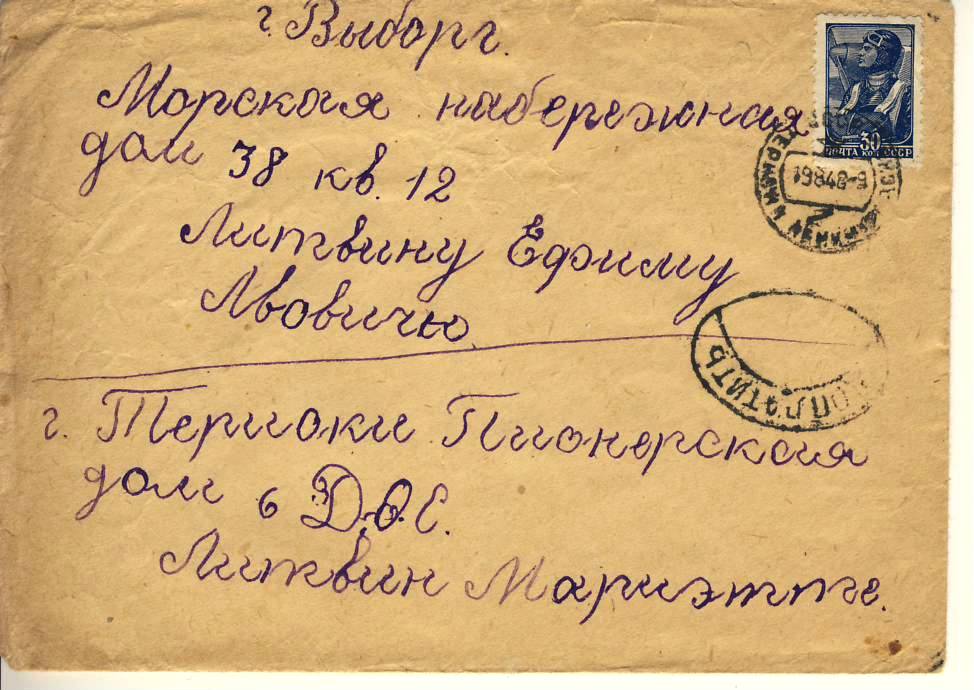 г. Выборг.
Морская набережная
дом 38 кв. 12
Литвину Ефиму
Львовичю
г. Териоки Пионерская
дом 6 Д.О.С.
Литвин Мариэтте.
30
ПОЧТА КОП. СССР
19848-9
ДОПЛАТИТЬ